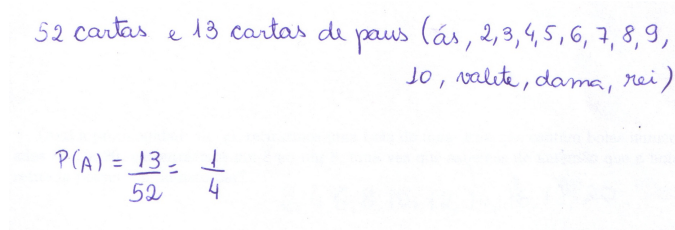 52 cartas e 13 cartas de paus (ás, 2, 3, 4, 5, 6, 7, 8, 9,
10, valete, dama, rei)
P(A) = 13/52 = 1/4